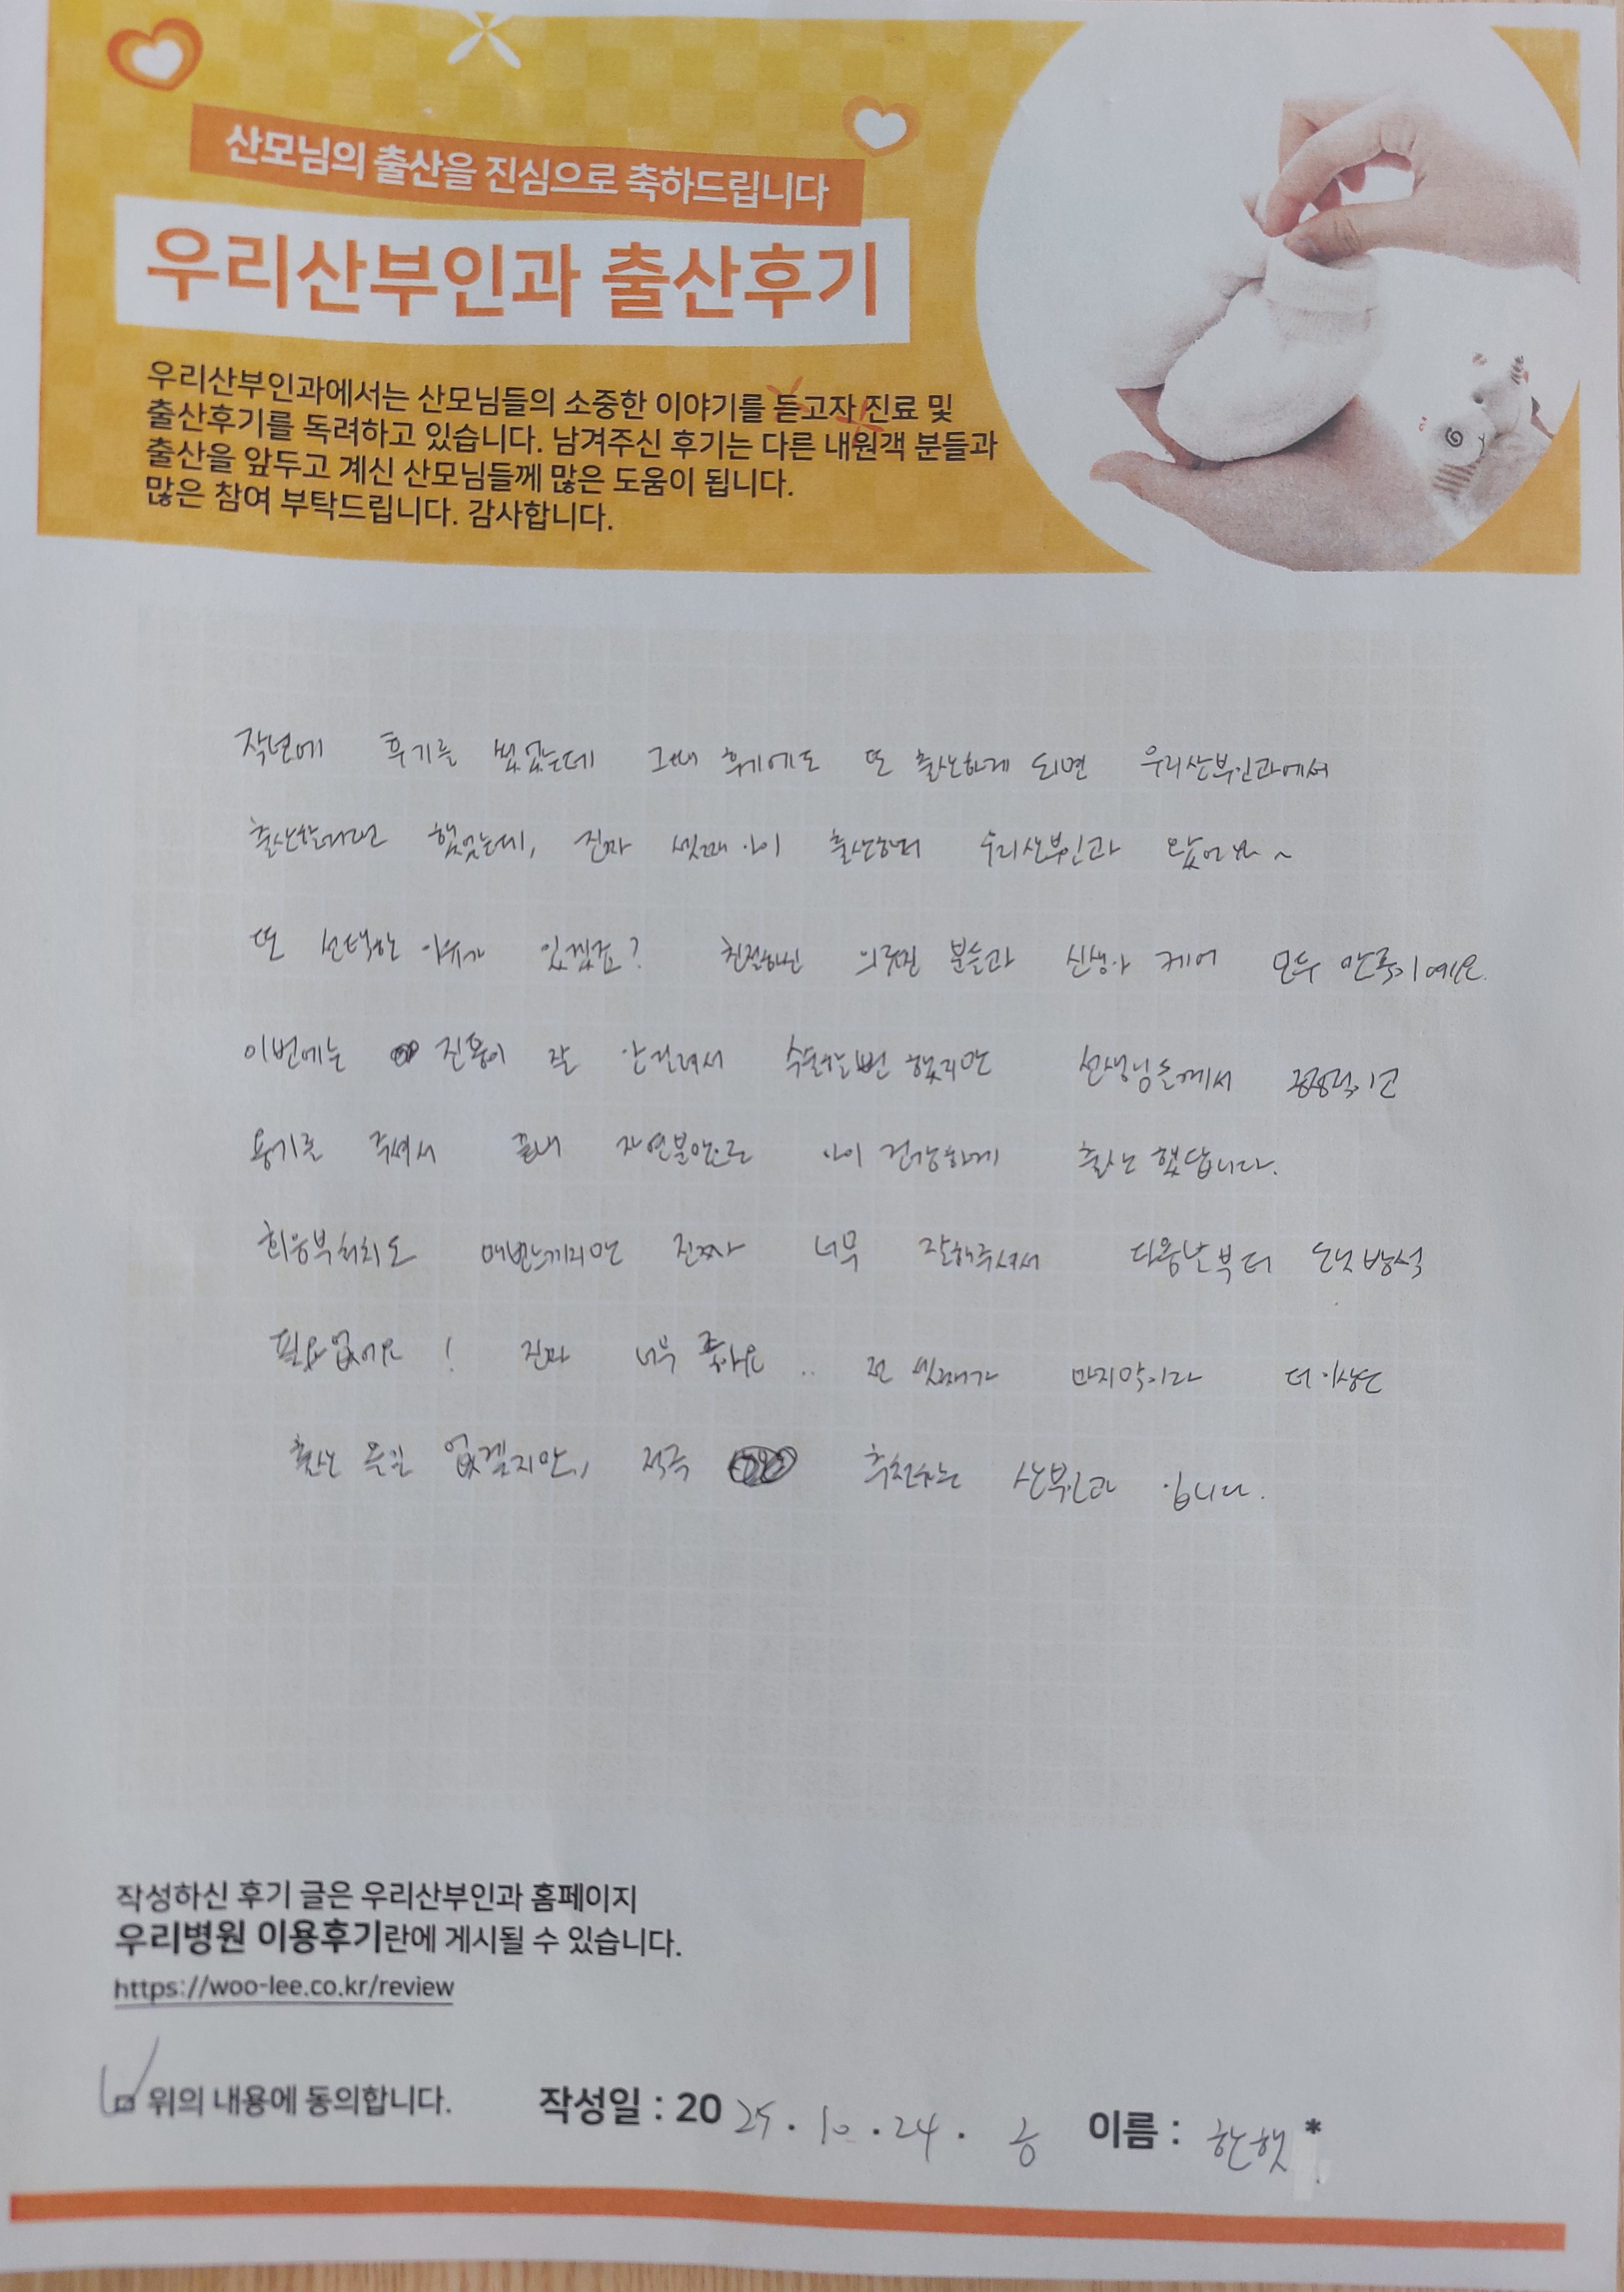 산모님의 출산을 진심으로 축하드립니다
우리산부인과 출산후기
우리산부인과에서는 산모님들의 소중한 이야기를 듣고자 진료 및
출산후기를 독려하고 있습니다. 남겨주신 후기는 다른 내원객 분들과
출산을 앞두고 계신 산모님들께 많은 도움이 됩니다.
많은 참여 부탁드립니다. 감사합니다.
작년에 후기를 썼었는데 그때 후기에도 또 출산하게 되면 우리산부인과에서
출산할거라던 했었는데, 진짜 셋째 아이 출산하러 우리산부인과 왔어요~
또 선택한 이유가 있겠죠? 친절하신 의료진 분들과 신생아 케어 모두 만족이예요.
이번에는 진통이 잘 안걸려서 수술할뻔 했지만 선생님들께서 긍정적이고
용기를 주셔서 끝내 자연분만으로 아이 건강하게 출산 했답니다.
회음부처치도 매번느끼지만 진짜 너무 잘해주셔서 다음날부터 도넛방석
필요없어요! 진짜 너무 좋아요.. 전 셋째가 마지막이라 더이상은
출산 올일 없겠지만, 적극 추천하는 산부인과 입니다.
작성하신 후기 글은 우리산부인과 홈페이지
우리병원 이용후기란에 게시될 수 있습니다.
https://woo-lee.co.kr/review
위의 내용에 동의합니다. 작성일 : 2025.10.24. 이름 : 한햇*